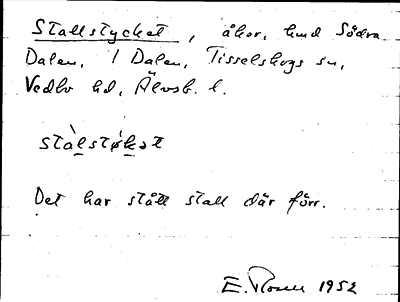 Stallstycket, åker, hmd Södra
Dalen, 1 Dalen, Tisselskogs sn,
Vedbo hd, Älvsb. l.
stàlstø̀kət
Det har stått stall där förr.
E. Rosen 1952